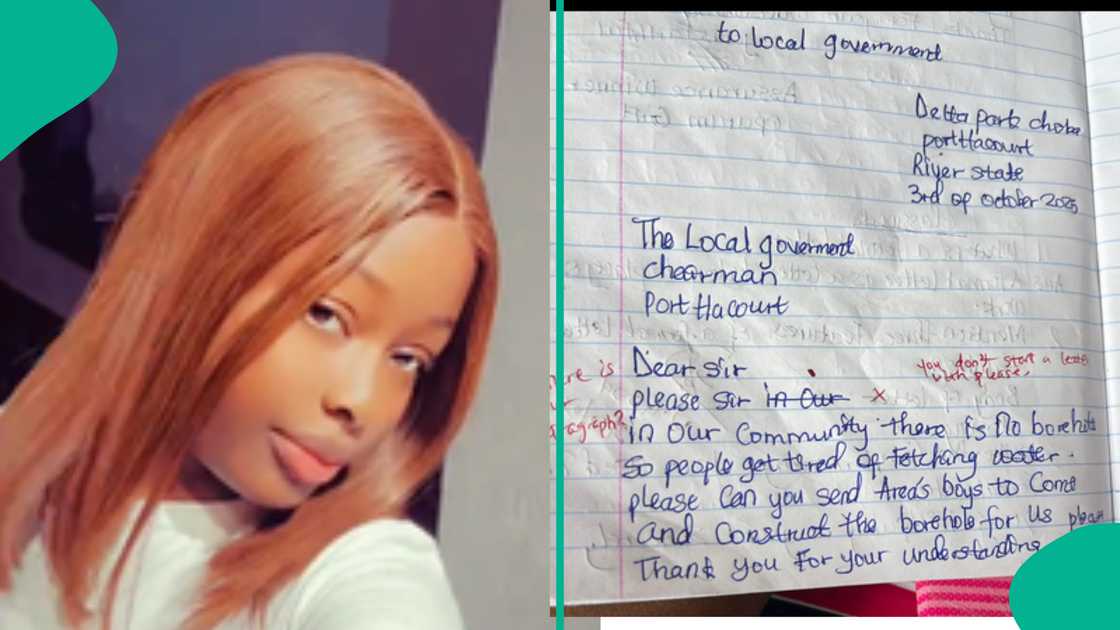 to Local government
Delta park choba
portHacourt
River state
3rd of october 2025
The Local goverment
chearman
port Hacourt
Dear sir
you don't start a letter
with please.
please sir in our x
in our community there is no borehole
so people get tired of fetching water.
please can you send Area's boys to come
and construct the borehole for us pleas
Thank you for your understanding